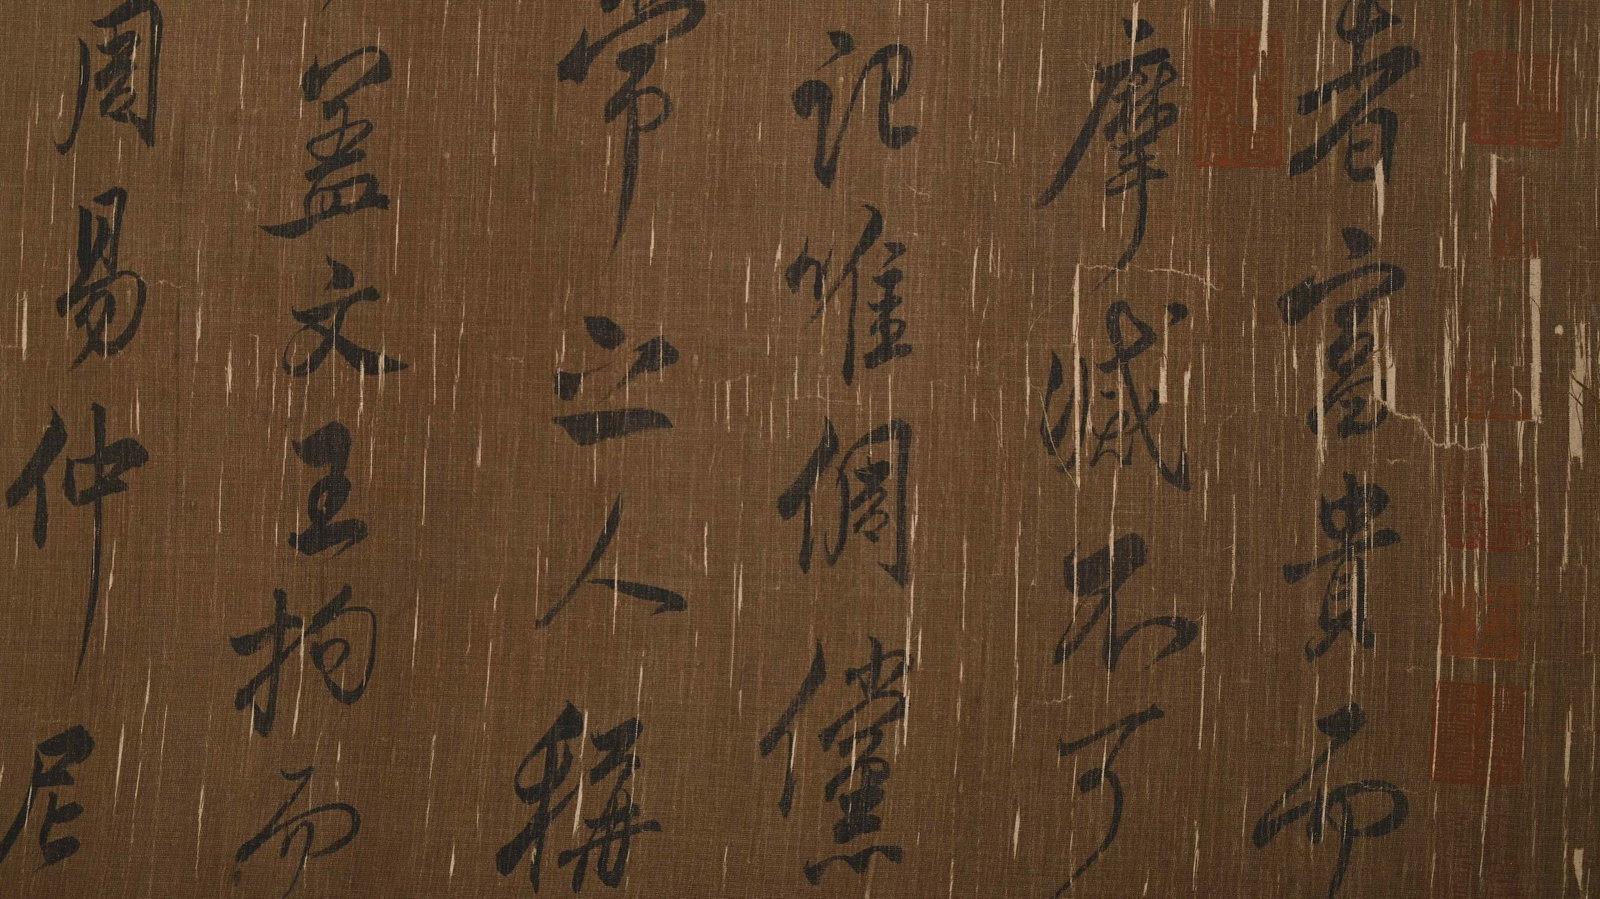 者富貴而
摩滅不可
記唯倜儻
常之人稱
蓋文王拘而
周易仲尼